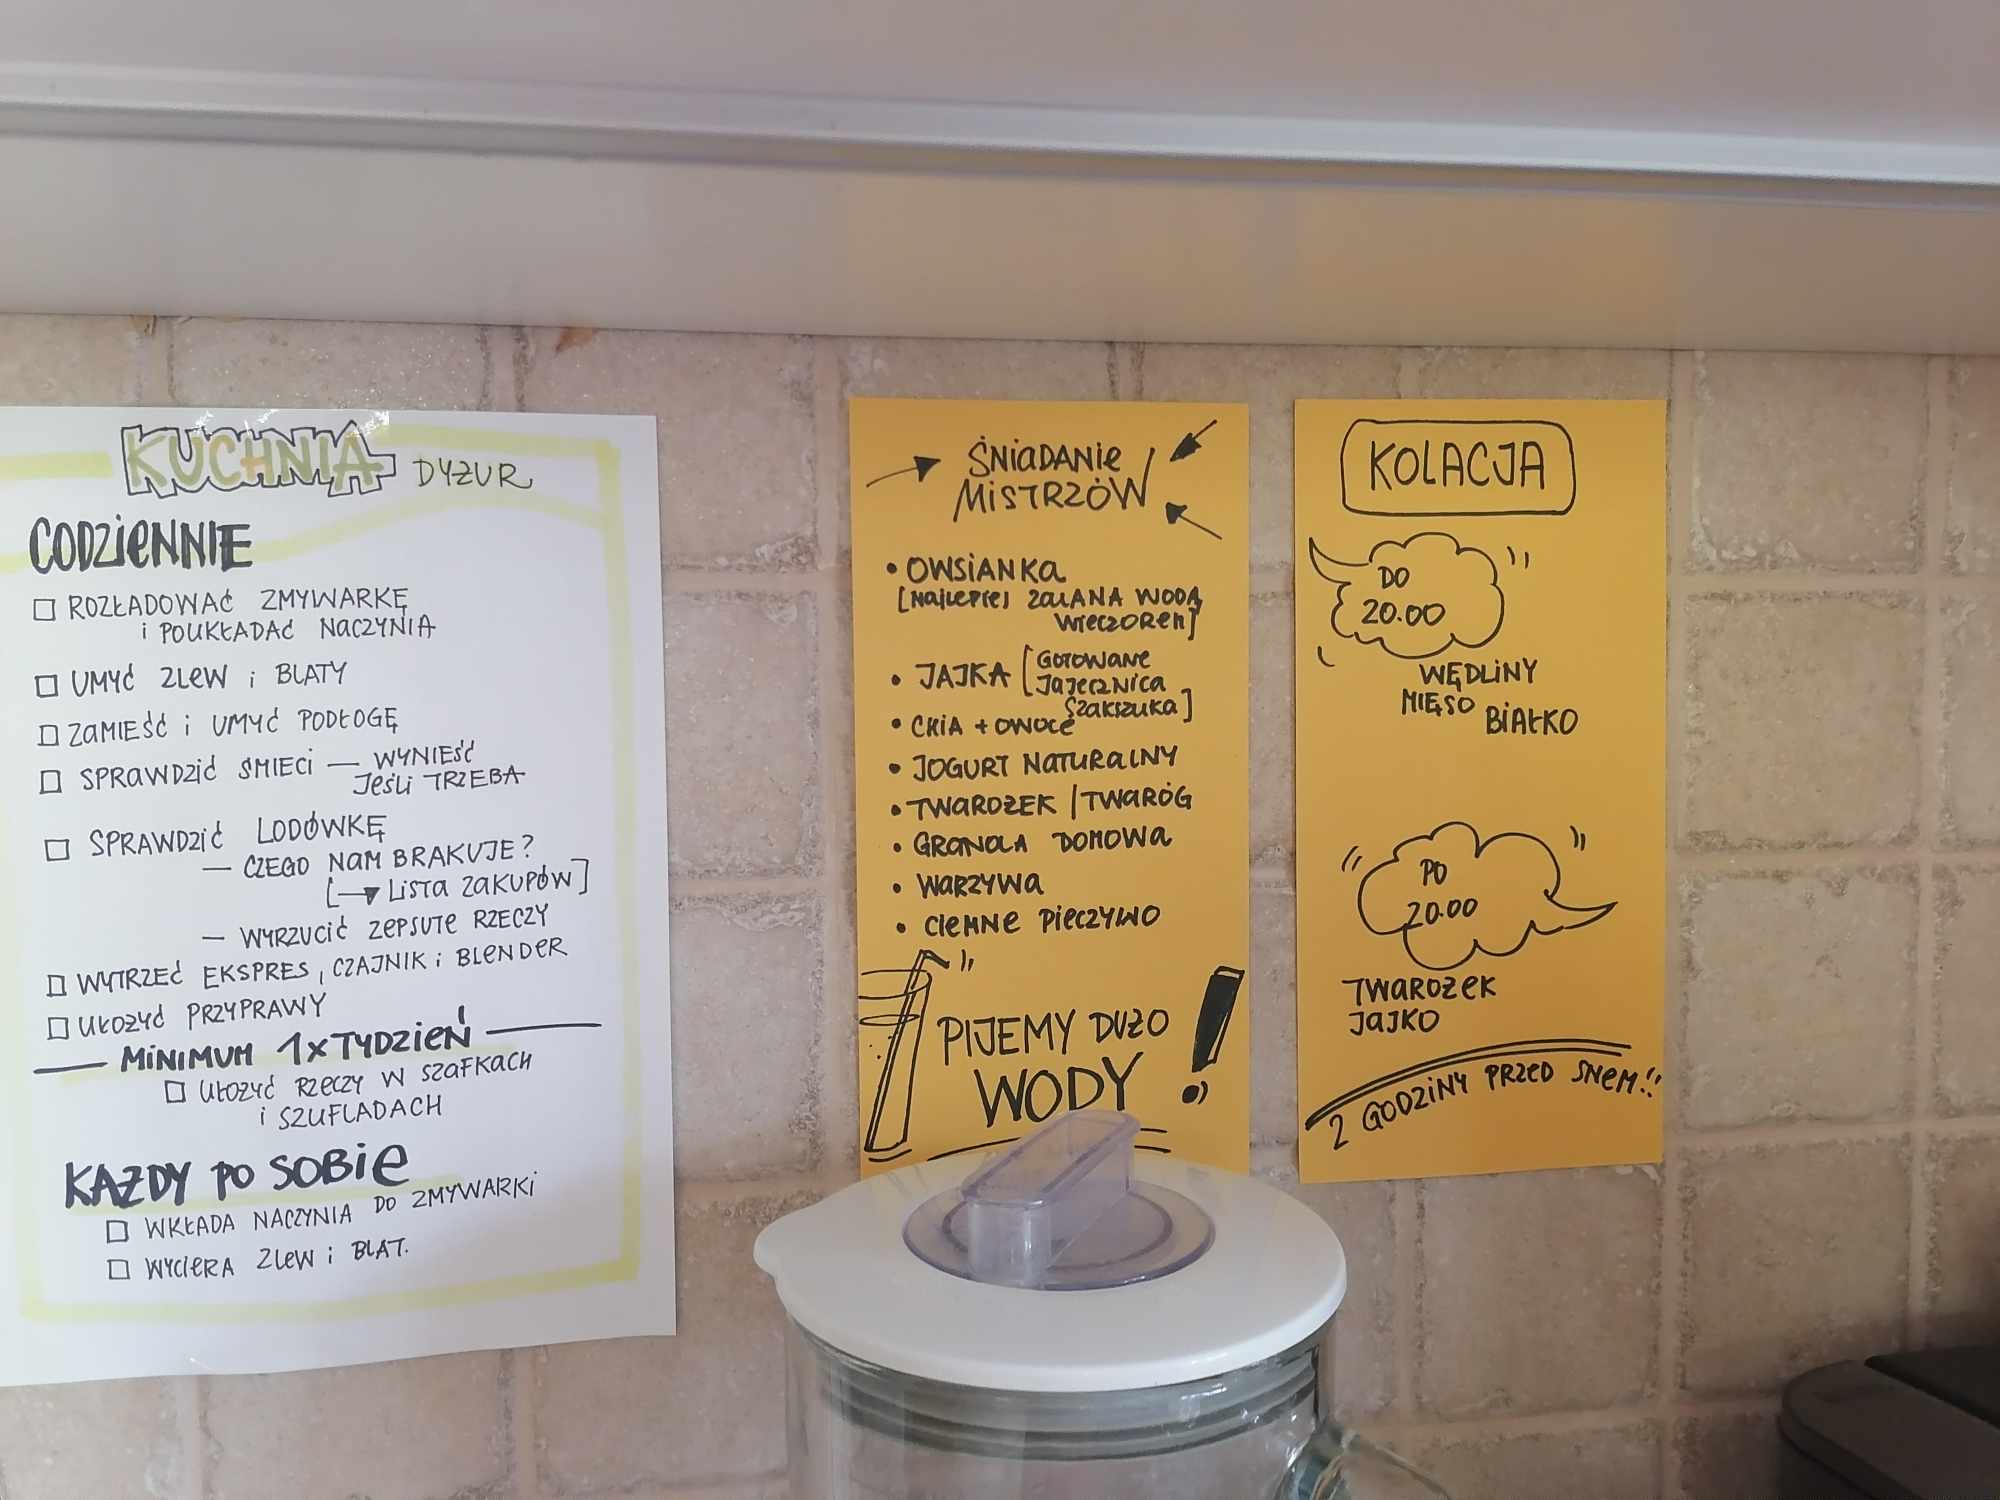 KUCHNIA DYŻUR
CODZIENNIE
□ ROZŁADOWAĆ ZMYWARKĘ
i POUKŁADAĆ NACZYNIA
□ UMYĆ ZLEW i BLATY
□ ZAMIEŚĆ i UMYĆ PODŁOGĘ
□ SPRAWDZIĆ ŚMIECI — WYNIEŚĆ
JEŚLI TRZEBA
□ SPRAWDZIĆ LODÓWKĘ
— CZEGO NAM BRAKUJE?
[→ LISTA ZAKUPÓW]
— WYRZUCIĆ ZEPSUTE RZECZY
□ WYTRZEĆ EKSPRES, CZAJNIK i BLENDER
□ UŁOŻYĆ PRZYPRAWY
— MINIMUM 1x TYDZIEŃ —
□ UŁOŻYĆ RZECZY W SZAFKACH
i SZUFLADACH
KAŻDY PO SOBIE
□ WKŁADA NACZYNIA DO ZMYWARKI
□ WYCIERA ZLEW i BLAT.
ŚNIADANIE
MISTRZÓW
• OWSIANKA
[NAJLEPIEJ ZALANA WODĄ
WIECZOREM]
• JAJKA [GOTOWANE
JAJECZNICA
SZAKSZUKA]
• CHIA + OWOCE
• JOGURT NATURALNY
• TWAROŻEK / TWARÓG
• GRANOLA DOMOWA
• WARZYWA
• CIEMNE PIECZYWO
PIJEMY DUŻO
WODY !
KOLACJA
DO
20.00
WĘDLINY
MIĘSO
BIAŁKO
PO
20.00
TWAROŻEK
JAJKO
2 GODZINY PRZED SNEM!!